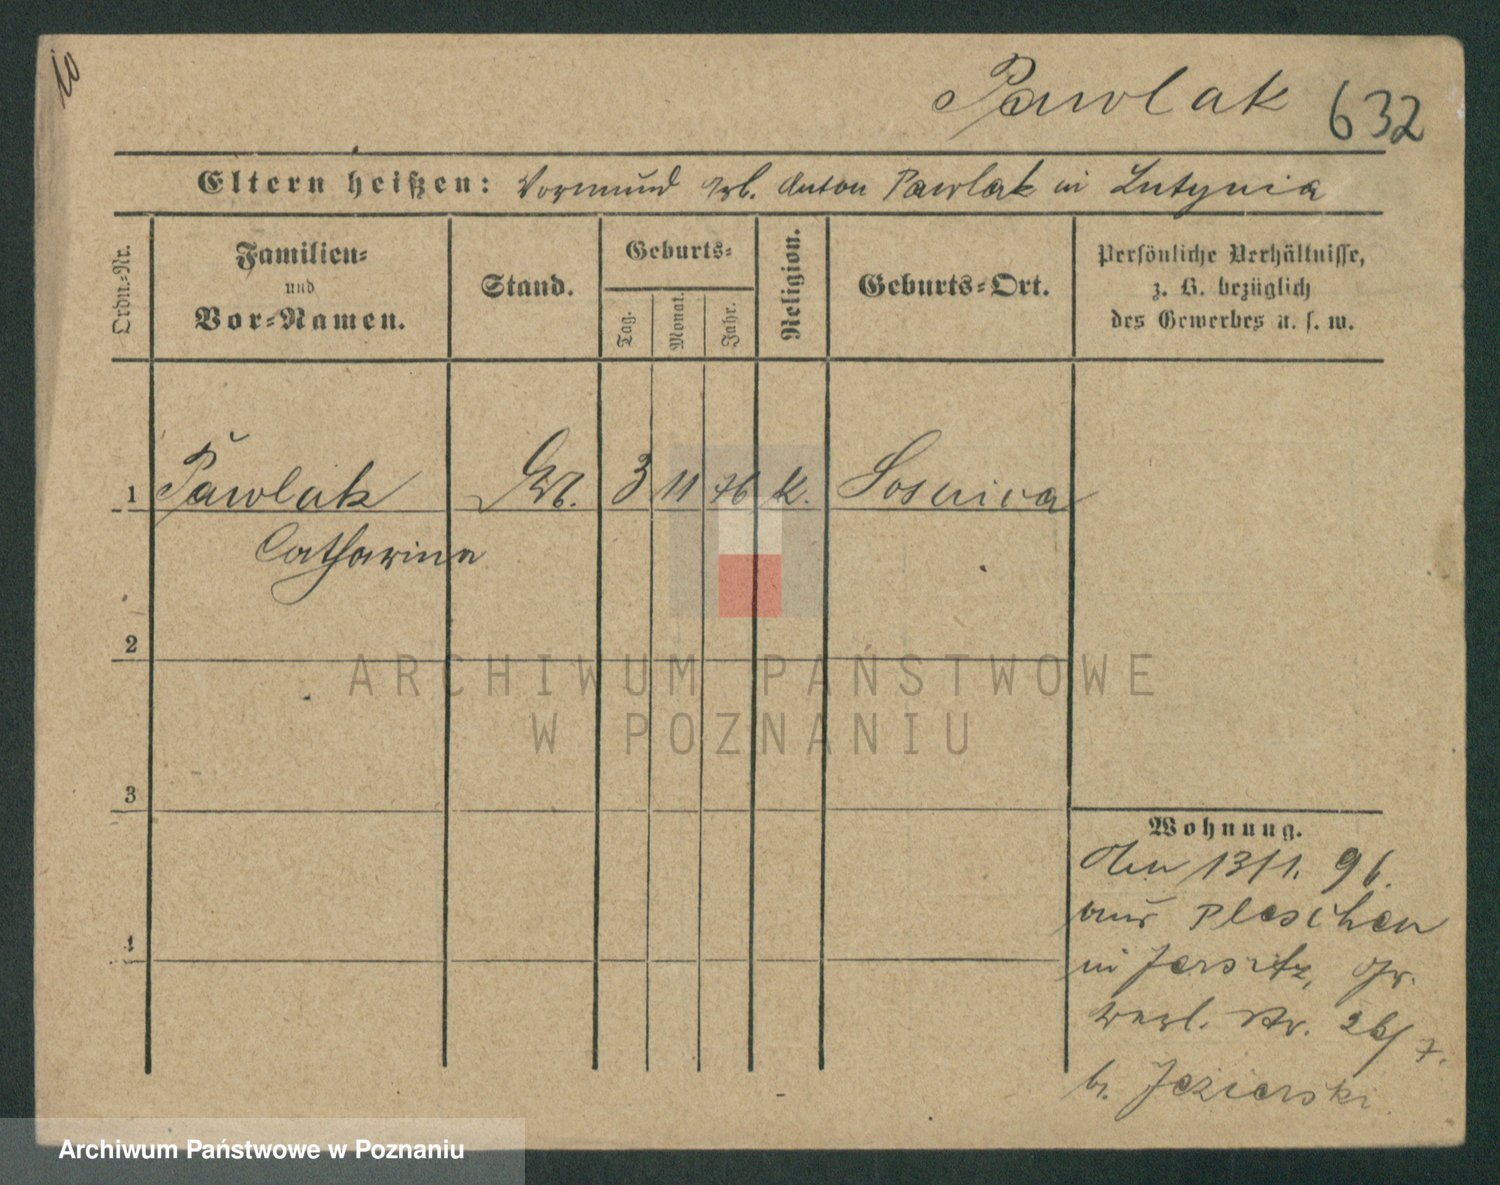 10
Pawlak 632
Eltern heißen: Vormund Arb. Anton Pawlak in Lutynia
Ordn.-Nr.
Familien-
und
Vor-Namen.
Stand.
Geburts-
Tag.
Monat.
Jahr.
Religion.
Geburts-Ort.
Persönliche Verhältnisse,
z. B. bezüglich
des Gewerbes u. s. w.
1 Pawlak 3 11 76 k. Sosnica
Catharina
2
3
4
Wohnung.
Den 13/1. 96.
aus Pleschen
in Jersitz, Gr.
Berl. Str. 26/7.
b. Jezierski
ARCHIWUM PAŃSTWOWE
W POZNANIU
Archiwum Państwowe w Poznaniu